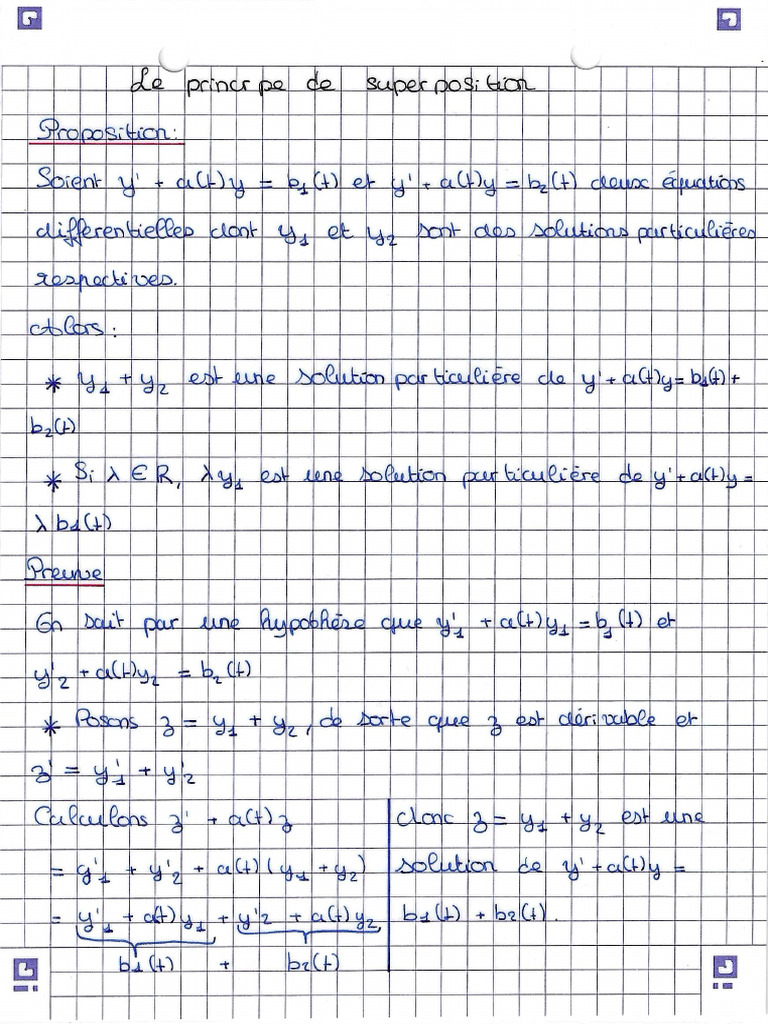 Le principe de superposition
Proposition:
Soient y' + a(t)y = b₁(t) et y' + a(t)y = b₂(t) deux équations
differentielles dont y₁ et y₂ sont des solutions particulières
respectives.
Alors :
* y₁ + y₂ est une solution particulière de y' + a(t)y = b₁(t) +
b₂(t)
* Si λ ∈ R, λy₁ est une solution particulière de y' + a(t)y =
λ b₁(t)
Preuve
On sait par une hypothèse que y'₁ + a(t)y₁ = b₁(t) et
y'₂ + a(t)y₂ = b₂(t)
* Posons z = y₁ + y₂, de sorte que z est dérivable et
z' = y'₁ + y'₂
Calculons z' + a(t)z
= y'₁ + y'₂ + a(t)(y₁ + y₂)
= y'₁ + a(t)y₁ + y'₂ + a(t)y₂
b₁(t) + b₂(t)
donc z = y₁ + y₂ est une
solution de y' + a(t)y =
b₁(t) + b₂(t).